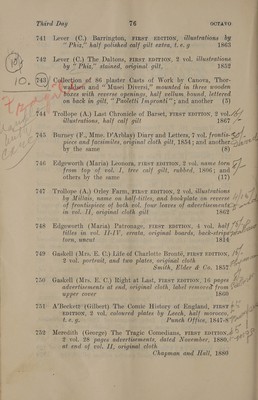 Third Day 76 OCTAVO
741 Lever (C.) Barrington, FIRST EDITION, illustrations by
"Phiz," half polished calf gilt extra, t. e. g 1863
742 Lever (C.) The Daltons, FIRST EDITION, 2 vol. illustrations
by "Phiz," stained, original gilt, 1852
743 Collection of 86 plaster Casts of Work by Canova, Thor-
waldsen and "Musei Diversi," mounted in three wooden
boxes with reverse openings, half vellum bound, lettered
on back in gilt, "Paoletti Impronti"; and another (5)
744 Trollope (A.) Last Chronicle of Barset, FIRST EDITION, 2 vol.
illustrations, half calf gilt 1867
745 Burney (F., Mme. D'Arblay) Diary and Letters, 7 vol. frontis-
piece and facsimiles, original cloth gilt, 1854; and another
by the same (8)
746 Edgeworth (Maria) Leonora, FIRST EDITION, 2 vol. name torn
from top of vol. I, tree calf gilt, rubbed, 1806; and
others by the same (17)
747 Trollope (A.) Orley Farm, FIRST EDITION, 2 vol. illustrations
by Millais, name on half-titles, and bookplate on reverse
of frontispiece of both vol. four leaves of advertisements
in vol. II, original cloth gilt 1862
748 Edgeworth (Maria) Patronage, FIRST EDITION, 4 vol. half
titles in vol. II-IV, errata, original boards, back-strips
torn, uncut 1814
749 Gaskell (Mrs. E. C.) Life of Charlotte Brontë, FIRST EDITION,
2 vol. portrait, and two plates, original cloth
Smith, Elder & Co. 1857
750 Gaskell (Mrs. E. C.) Right at Last, FIRST EDITION, 16 pages
advertisements at end, original cloth, label removed from
upper cover 1860
751 A'Beckett (Gilbert) The Comic History of England, FIRST
EDITION, 2 vol. coloured plates by Leech, half morocco,
t. e. g. Punch Office, 1847-8
752 Meredith (George) The Tragic Comedians, FIRST EDITION,
2 vol. 28 pages advertisements, dated November, 1880,
at end of vol. II, original cloth
Chapman and Hall, 1880